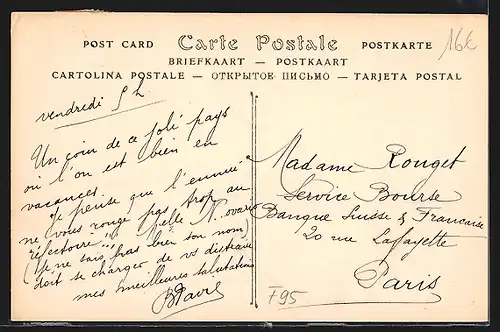 POST CARD Carte Postale POSTKARTE
BRIEFKAART — POSTKAART
CARTOLINA POSTALE — ОТКРЫТОЕ ПИСЬМО — TARJETA POSTAL
16€
vendredi 5 h
Un coin de ce joli pays
où l'on est bien en
vacances.
Je pense que l'ennui
ne vous ronge pas trop au
réfectoire et pelle
(je ne sais pas bien son nom)
doit se charger de vs distraire
mes meilleures salutations
Madame Rouget
Service Bourse
Banque Suisse & Francaise
20 rue Lafayette
Paris
F95